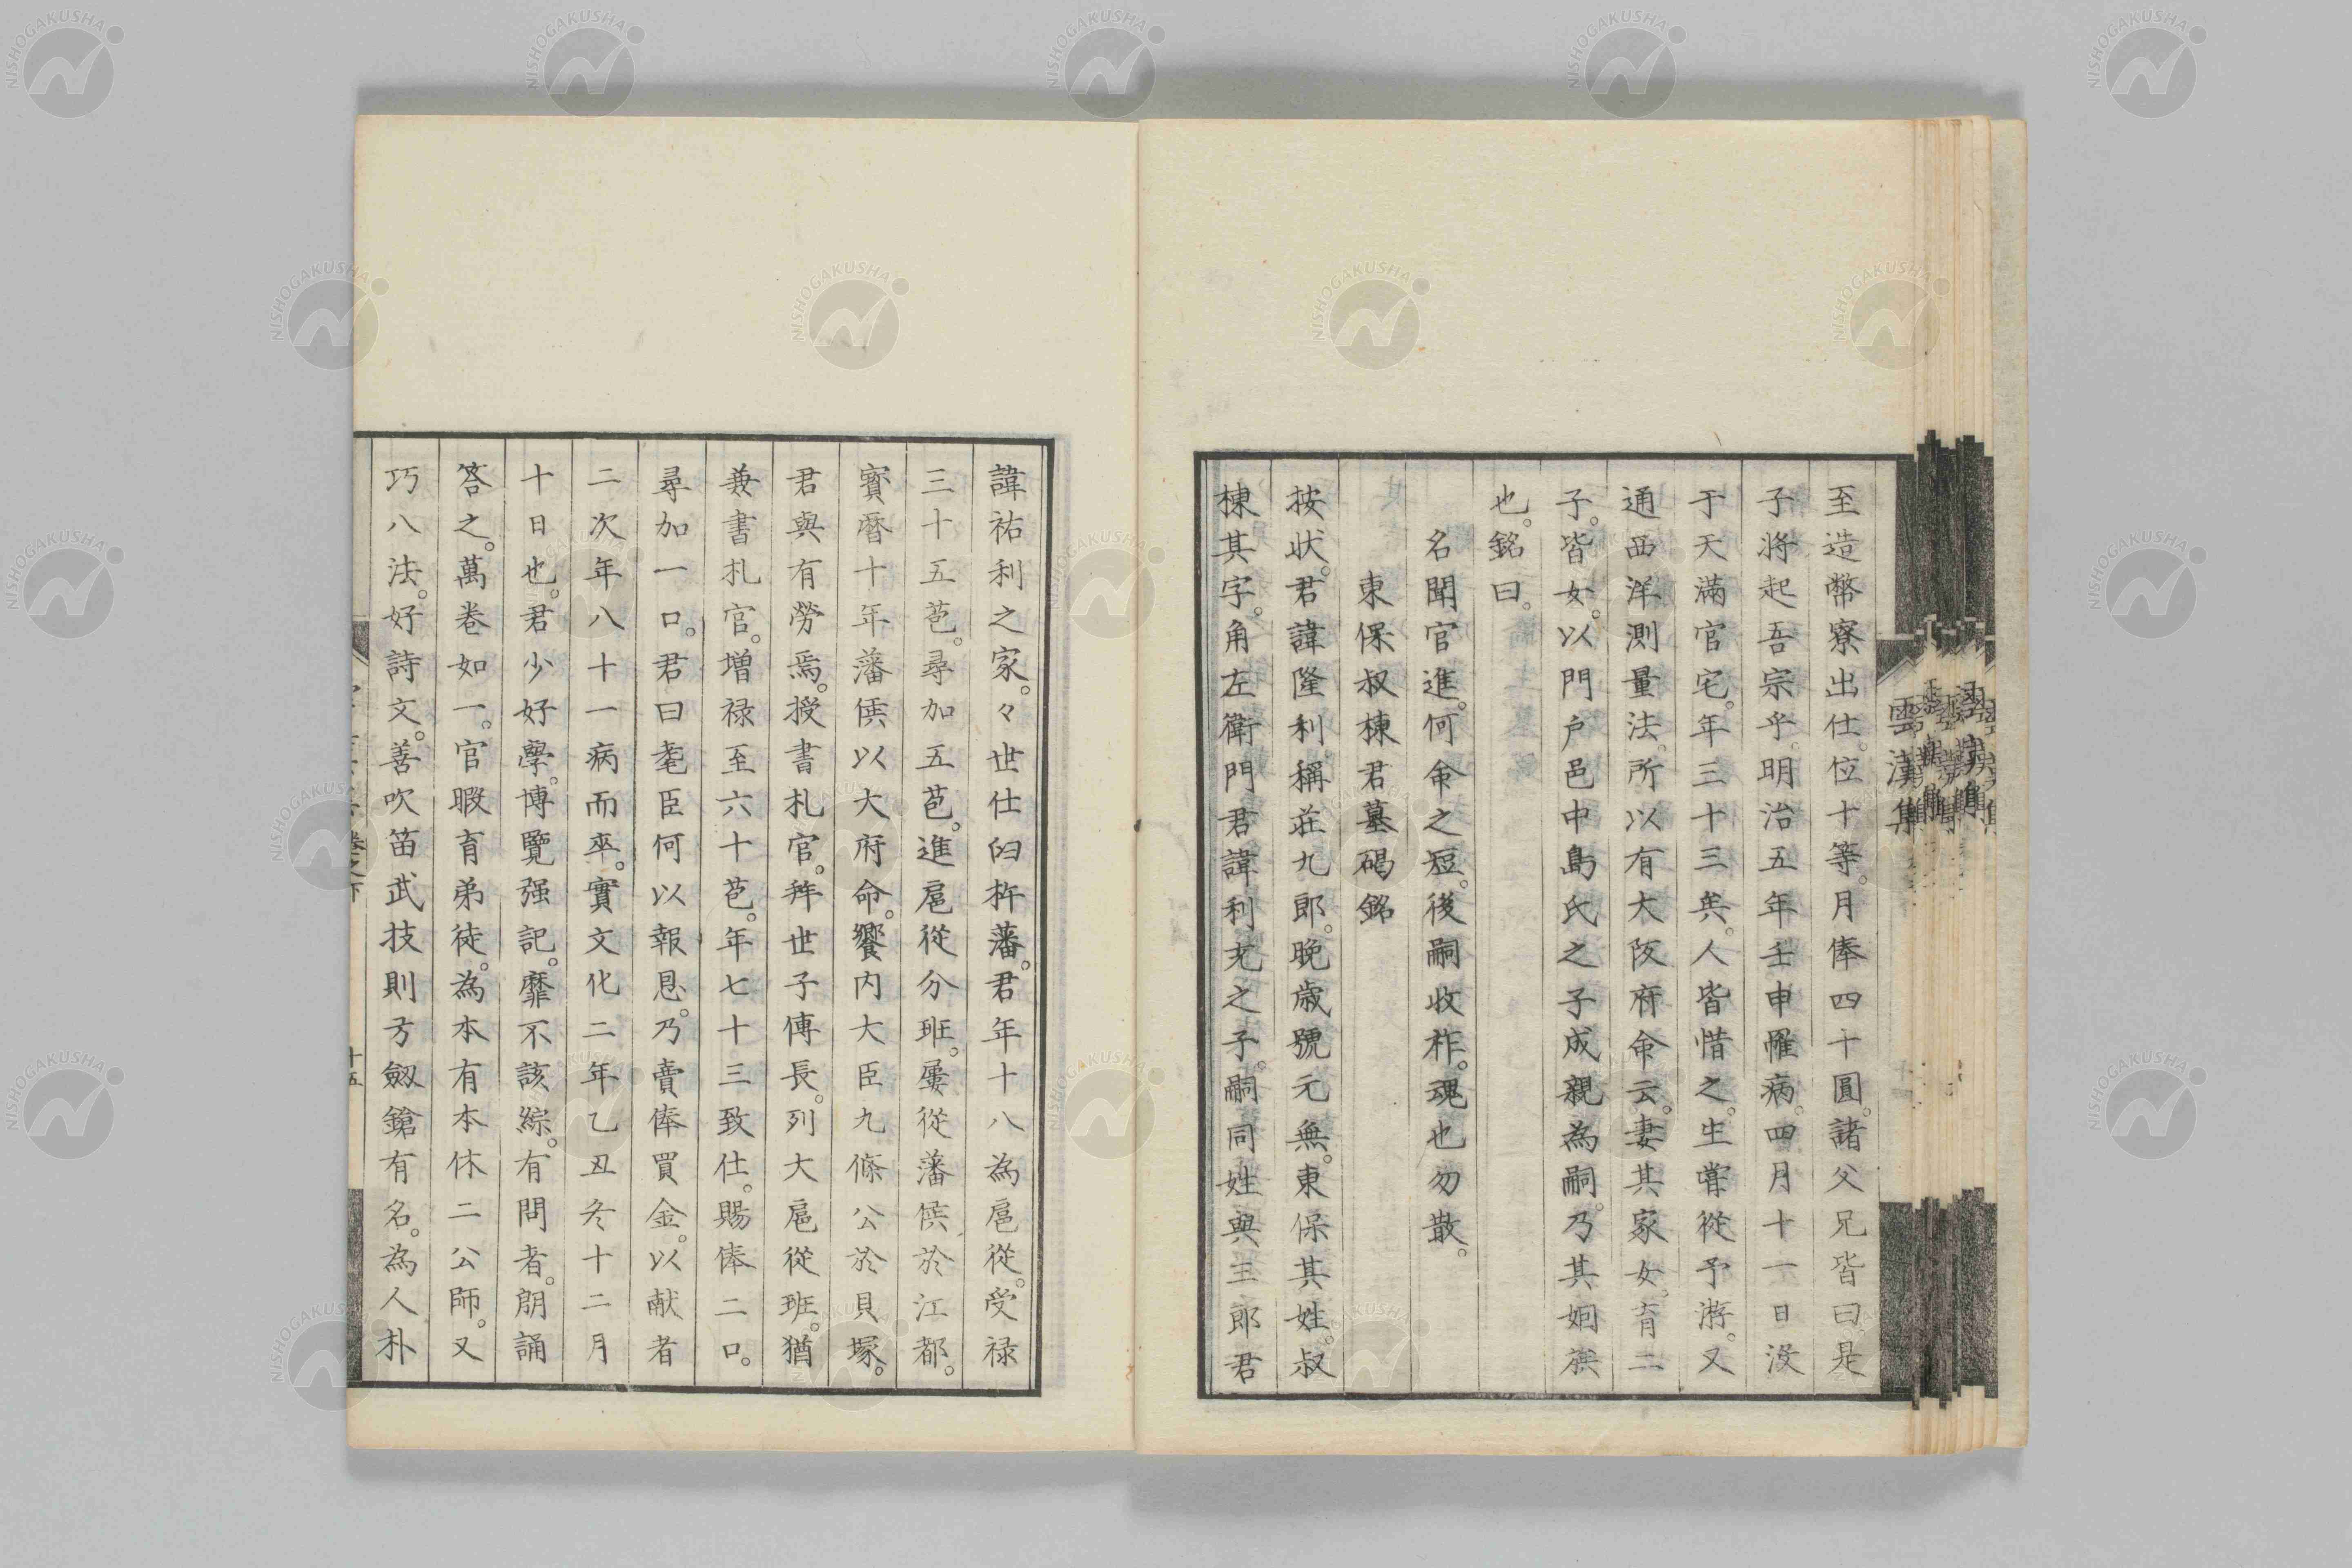 至造幣寮出仕。位十等。月俸四十圓。諸父兄皆曰。是
子將起吾宗乎。明治五年壬申罹病。四月十一日没
于天滿官宅。年三十三矣。人皆惜之。生嘗從予游。又
通西洋測量法。所以有大阪府命云。妻其家女。育二
子。皆女。以門戸邑中島氏之子成親為嗣。乃其姻族
也。銘曰。
名聞官進。何命之短。後嗣收柞。魂也勿散。
東保叔棟君墓碣銘
按状。君諱隆利。稱莊九郎。晩歳號元無。東保其姓。叔
棟其字。角左衛門君諱利充之子。嗣同姓與三郎君
諱祐利之家。々世仕臼杵藩。君年十八為扈從。受禄
三十五苞。尋加五苞。進扈從分班。屢從藩侯於江都。
寳暦十年藩侯以大府命。饗内大臣九條公於貝塚。
君與有勞焉。授書札官。拜世子傅長。列大扈從班。猶
兼書札官。増禄至六十苞。年七十三致仕。賜俸二口。
尋加一口。君曰耄臣何以報恩。乃賣俸買金。以献者
二次年八十一病而卒。實文化二年乙丑冬十二月
十日也。君少好學。博覽强記。靡不該綜。有問者。朗誦
答之。萬巻如一。官暇育弟徒。為本有本休二公師。又
巧八法。好詩文。善吹笛武技則弓劔鎗有名。為人朴
雲漢集
巻之下
十五
NISHOGAKUSHA